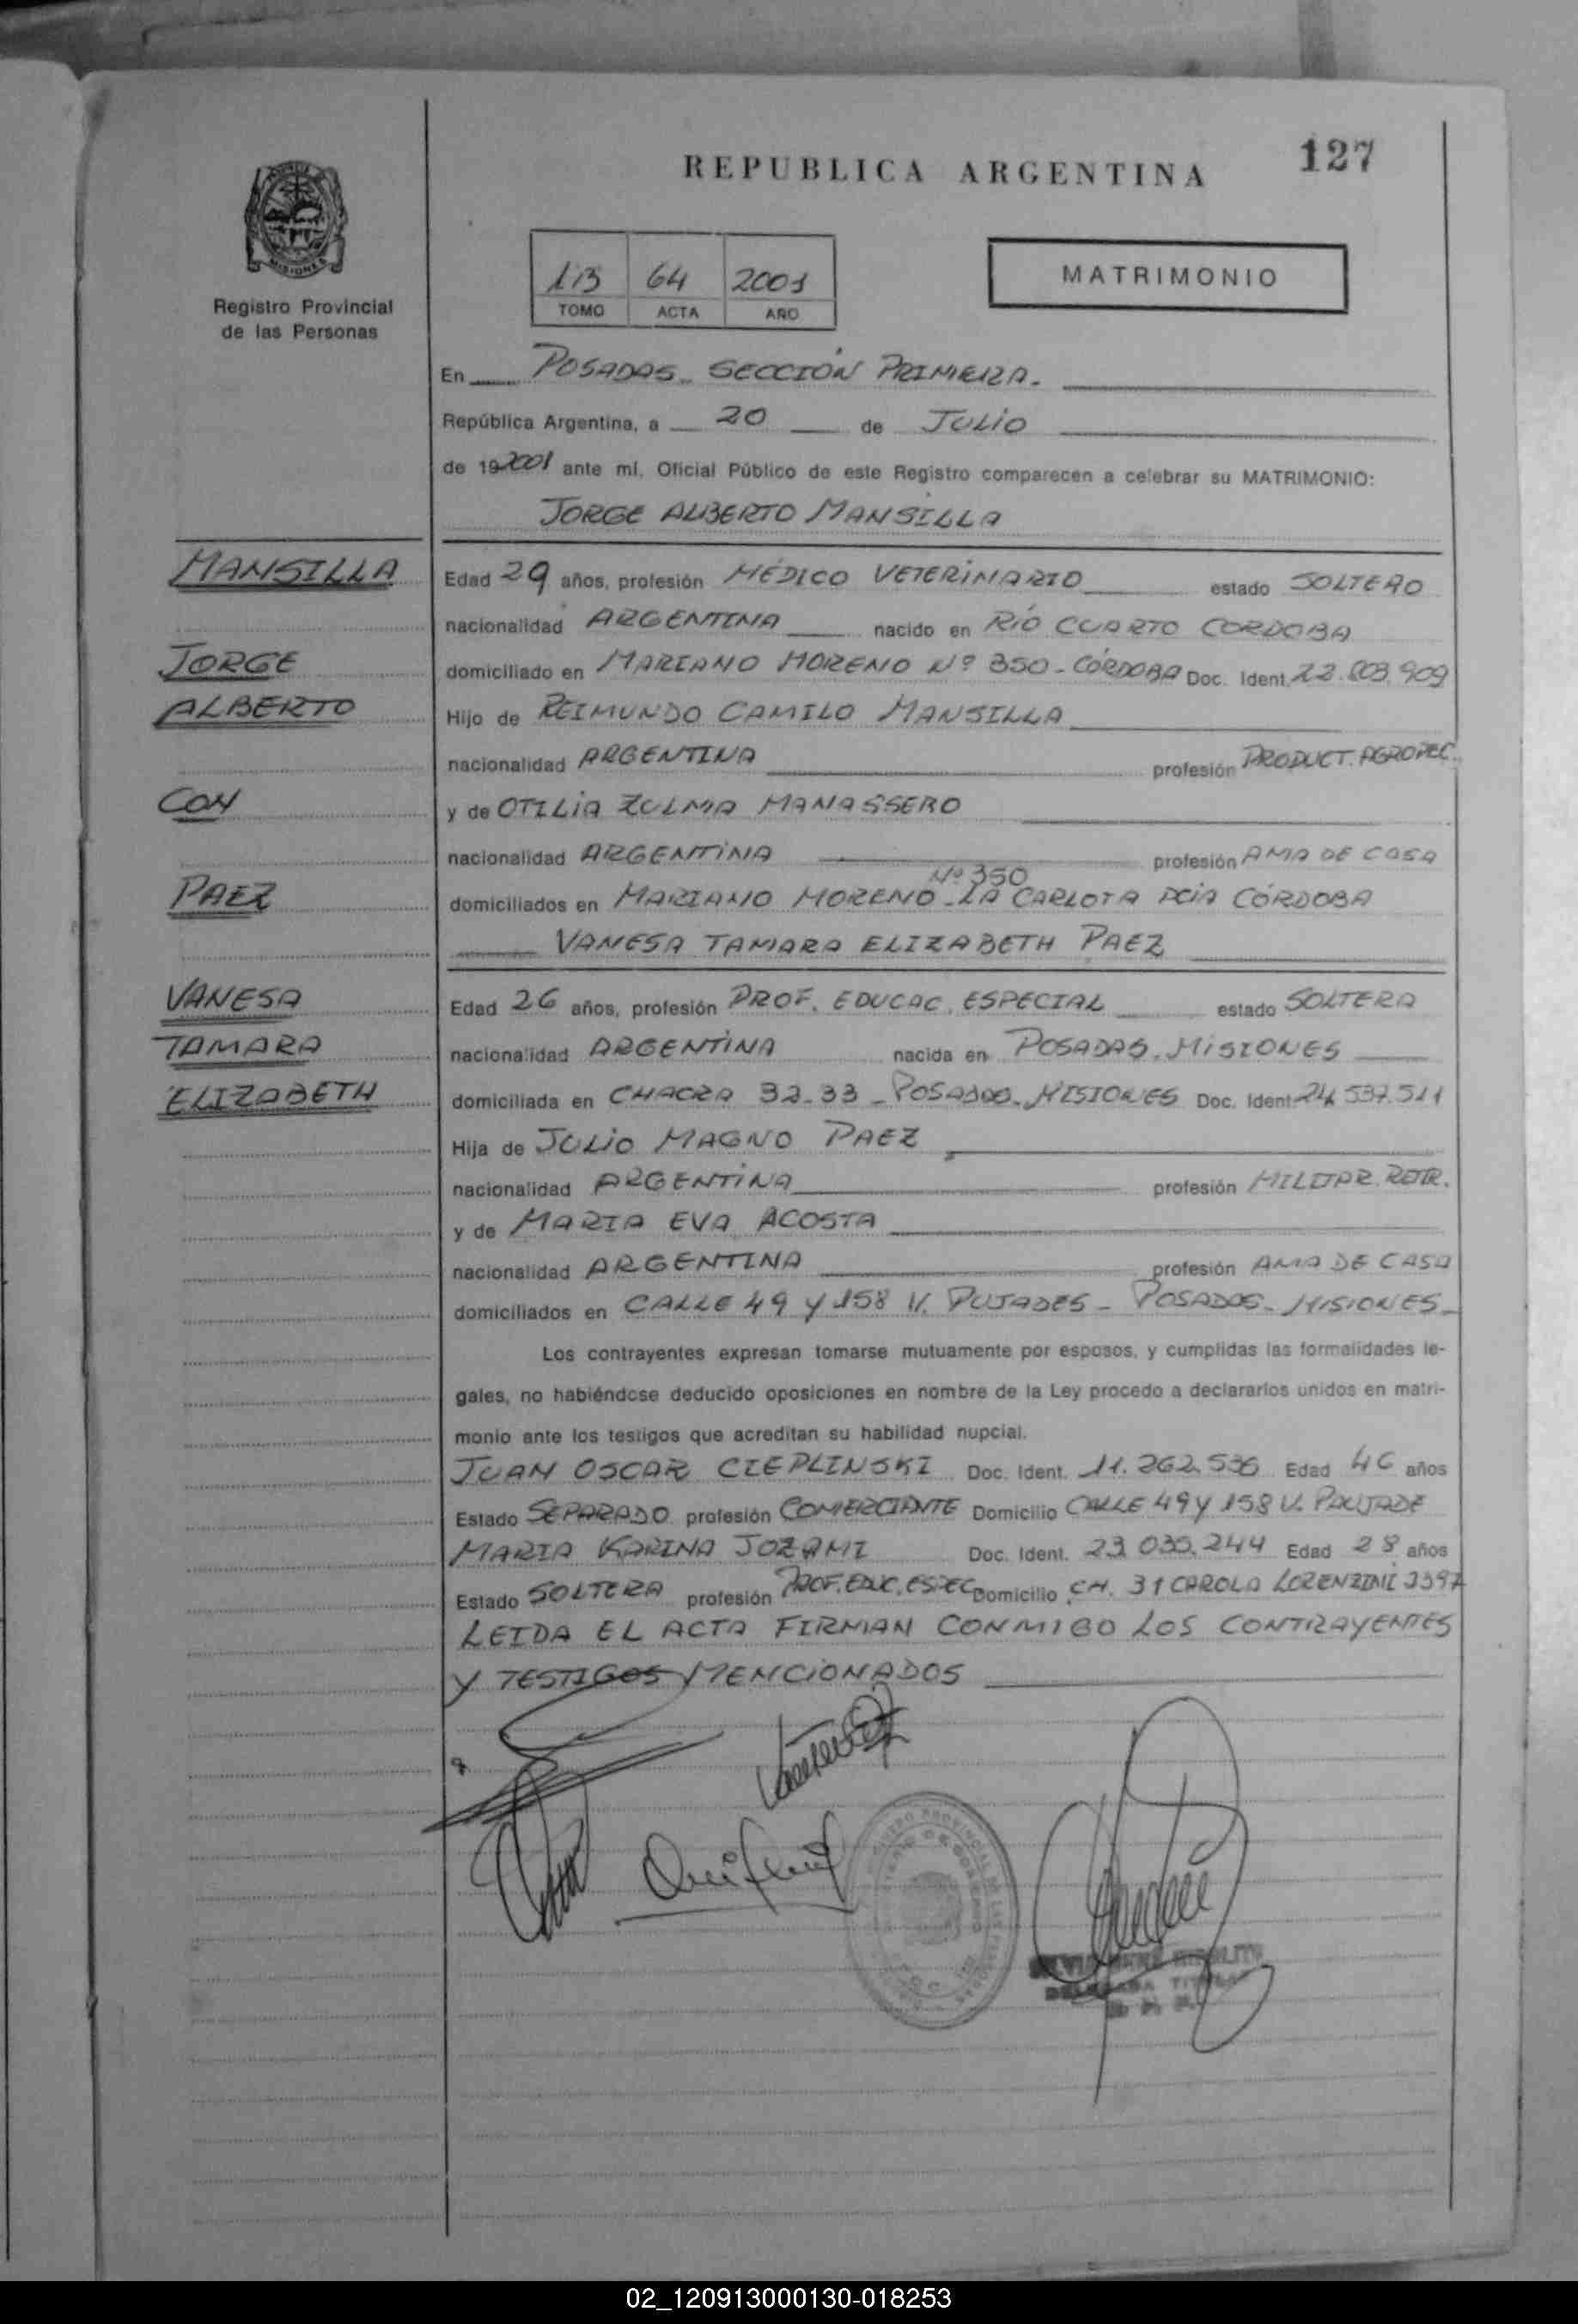 REPUBLICA ARGENTINA
127
MISIONES
Registro Provincial
de las Personas
1B 64 2001
TOMO ACTA AÑO
MATRIMONIO
En POSADAS SECCIÓN PRIMERA.
República Argentina, a 20 de JULIO
de 192001 ante mí, Oficial Público de este Registro comparecen a celebrar su MATRIMONIO:
JORGE ALBERTO MANSILLA
MANSILLA
Edad 29 años, profesión MÉDICO VETERINARIO estado SOLTERO
nacionalidad ARGENTINA nacido en RÍO CUARTO CORDOBA
JORGE
domiciliado en MARIANO MORENO Nº 350 - CÓRDOBA Doc. Ident. 22.803.909
ALBERTO
Hijo de REIMUNDO CAMILO MANSILLA
nacionalidad ARGENTINA profesión PRODUCT. AGROPEC.
CON
y de OTILIA ZULMA MANASSERO
nacionalidad ARGENTINA profesión AMA DE CASA
PAEZ
Nº 350
domiciliados en MARIANO MORENO - LA CARLOTA PCIA CÓRDOBA
VANESA TAMARA ELIZABETH PAEZ
VANESA
Edad 26 años, profesión PROF. EDUCAC. ESPECIAL estado SOLTERA
TAMARA
nacionalidad ARGENTINA nacida en POSADAS. MISIONES
ELIZABETH
domiciliada en CHACRA 32-33 - POSADAS. MISIONES Doc. Ident. 24.537.511
Hija de JULIO MAGNO PAEZ
nacionalidad ARGENTINA profesión MILITAR. RETIR.
y de MARIA EVA ACOSTA
nacionalidad ARGENTINA profesión AMA DE CASA
domiciliados en CALLE 49 Y 158 V. PUJADES - POSADAS - MISIONES
Los contrayentes expresan tomarse mutuamente por esposos, y cumplidas las formalidades le-
gales, no habiéndose deducido oposiciones en nombre de la Ley procedo a declararlos unidos en matri-
monio ante los testigos que acreditan su habilidad nupcial.
JUAN OSCAR CIEPLINSKI Doc. Ident. 11.262.536 Edad 46 años
Estado SEPARADO profesión COMERCIANTE Domicilio CALLE 49 Y 158 V. PAUJADE
MARIA KARINA JOZAMI Doc. Ident. 23.030.244 Edad 28 años
Estado SOLTERA profesión PROF. EDUC. ESPEC Domicilio CH. 31 CAROLA LORENZINI 3397
LEIDA EL ACTA FIRMAN CONMIGO LOS CONTRAYENTES
Y TESTIGOS MENCIONADOS
DELEGADA TITULAR
02_120913000130-018253